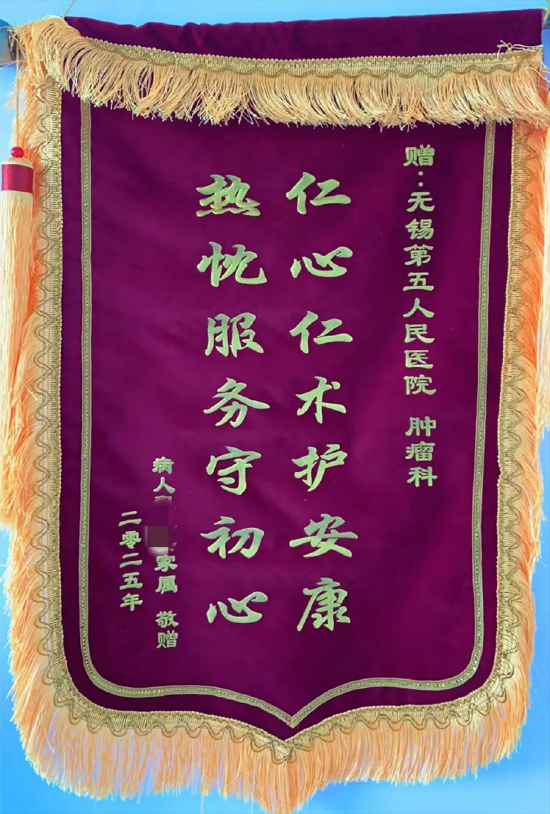 赠:无锡第五人民医院 肿瘤科
仁心仁术护安康
热忱服务守初心
病人 家属 敬赠
二零二五年